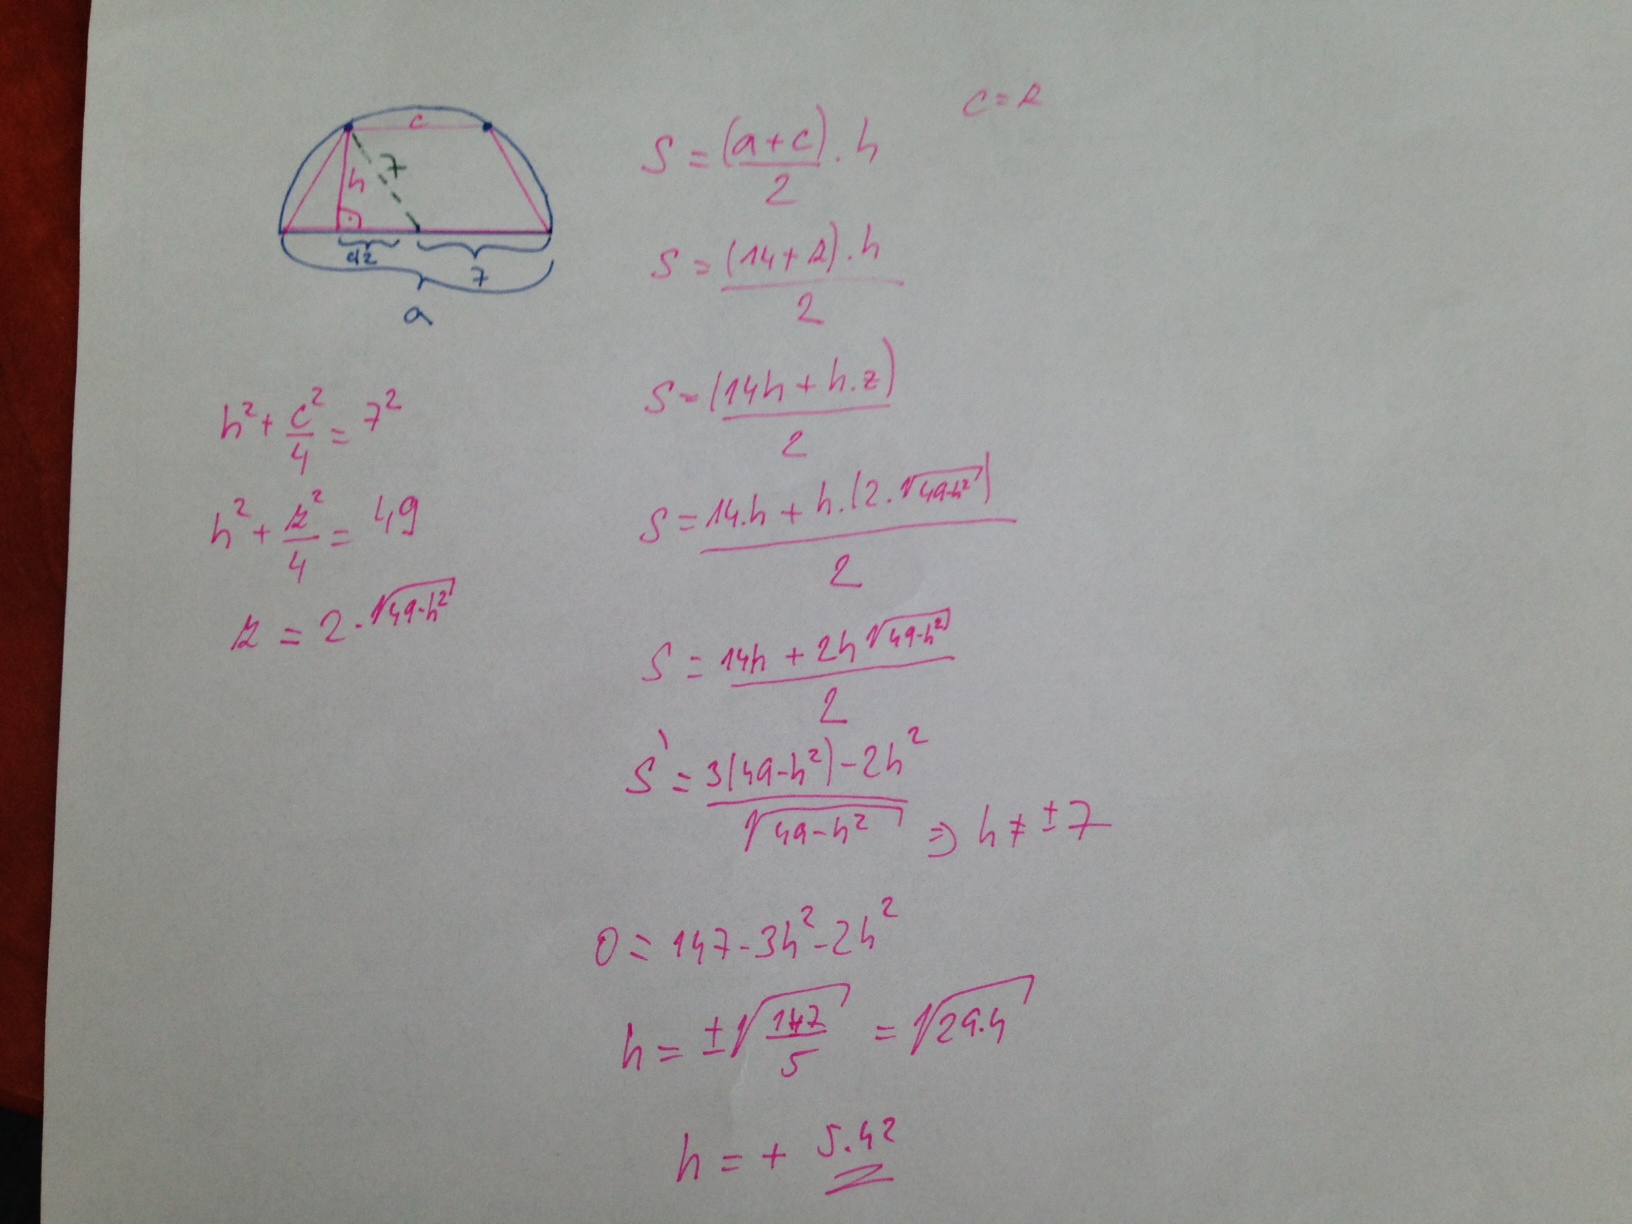 c
h
7
z/2
7
a
h² + c²/4 = 7²
h² + z²/4 = 49
z = 2·√(49-h²)
c = z
S = (a+c)·h / 2
S = (14+z)·h / 2
S = (14h + h·z) / 2
S = 14·h + h·(2·√(49-h²)) / 2
S = 14h + 2h√(49-h²) / 2
S' = 3(49-h²)-2h² / √(49-h²) ⇒ h ≠ ±7
0 = 147-3h²-2h²
h = ±√(147/5) = √29.4
h = + 5.42